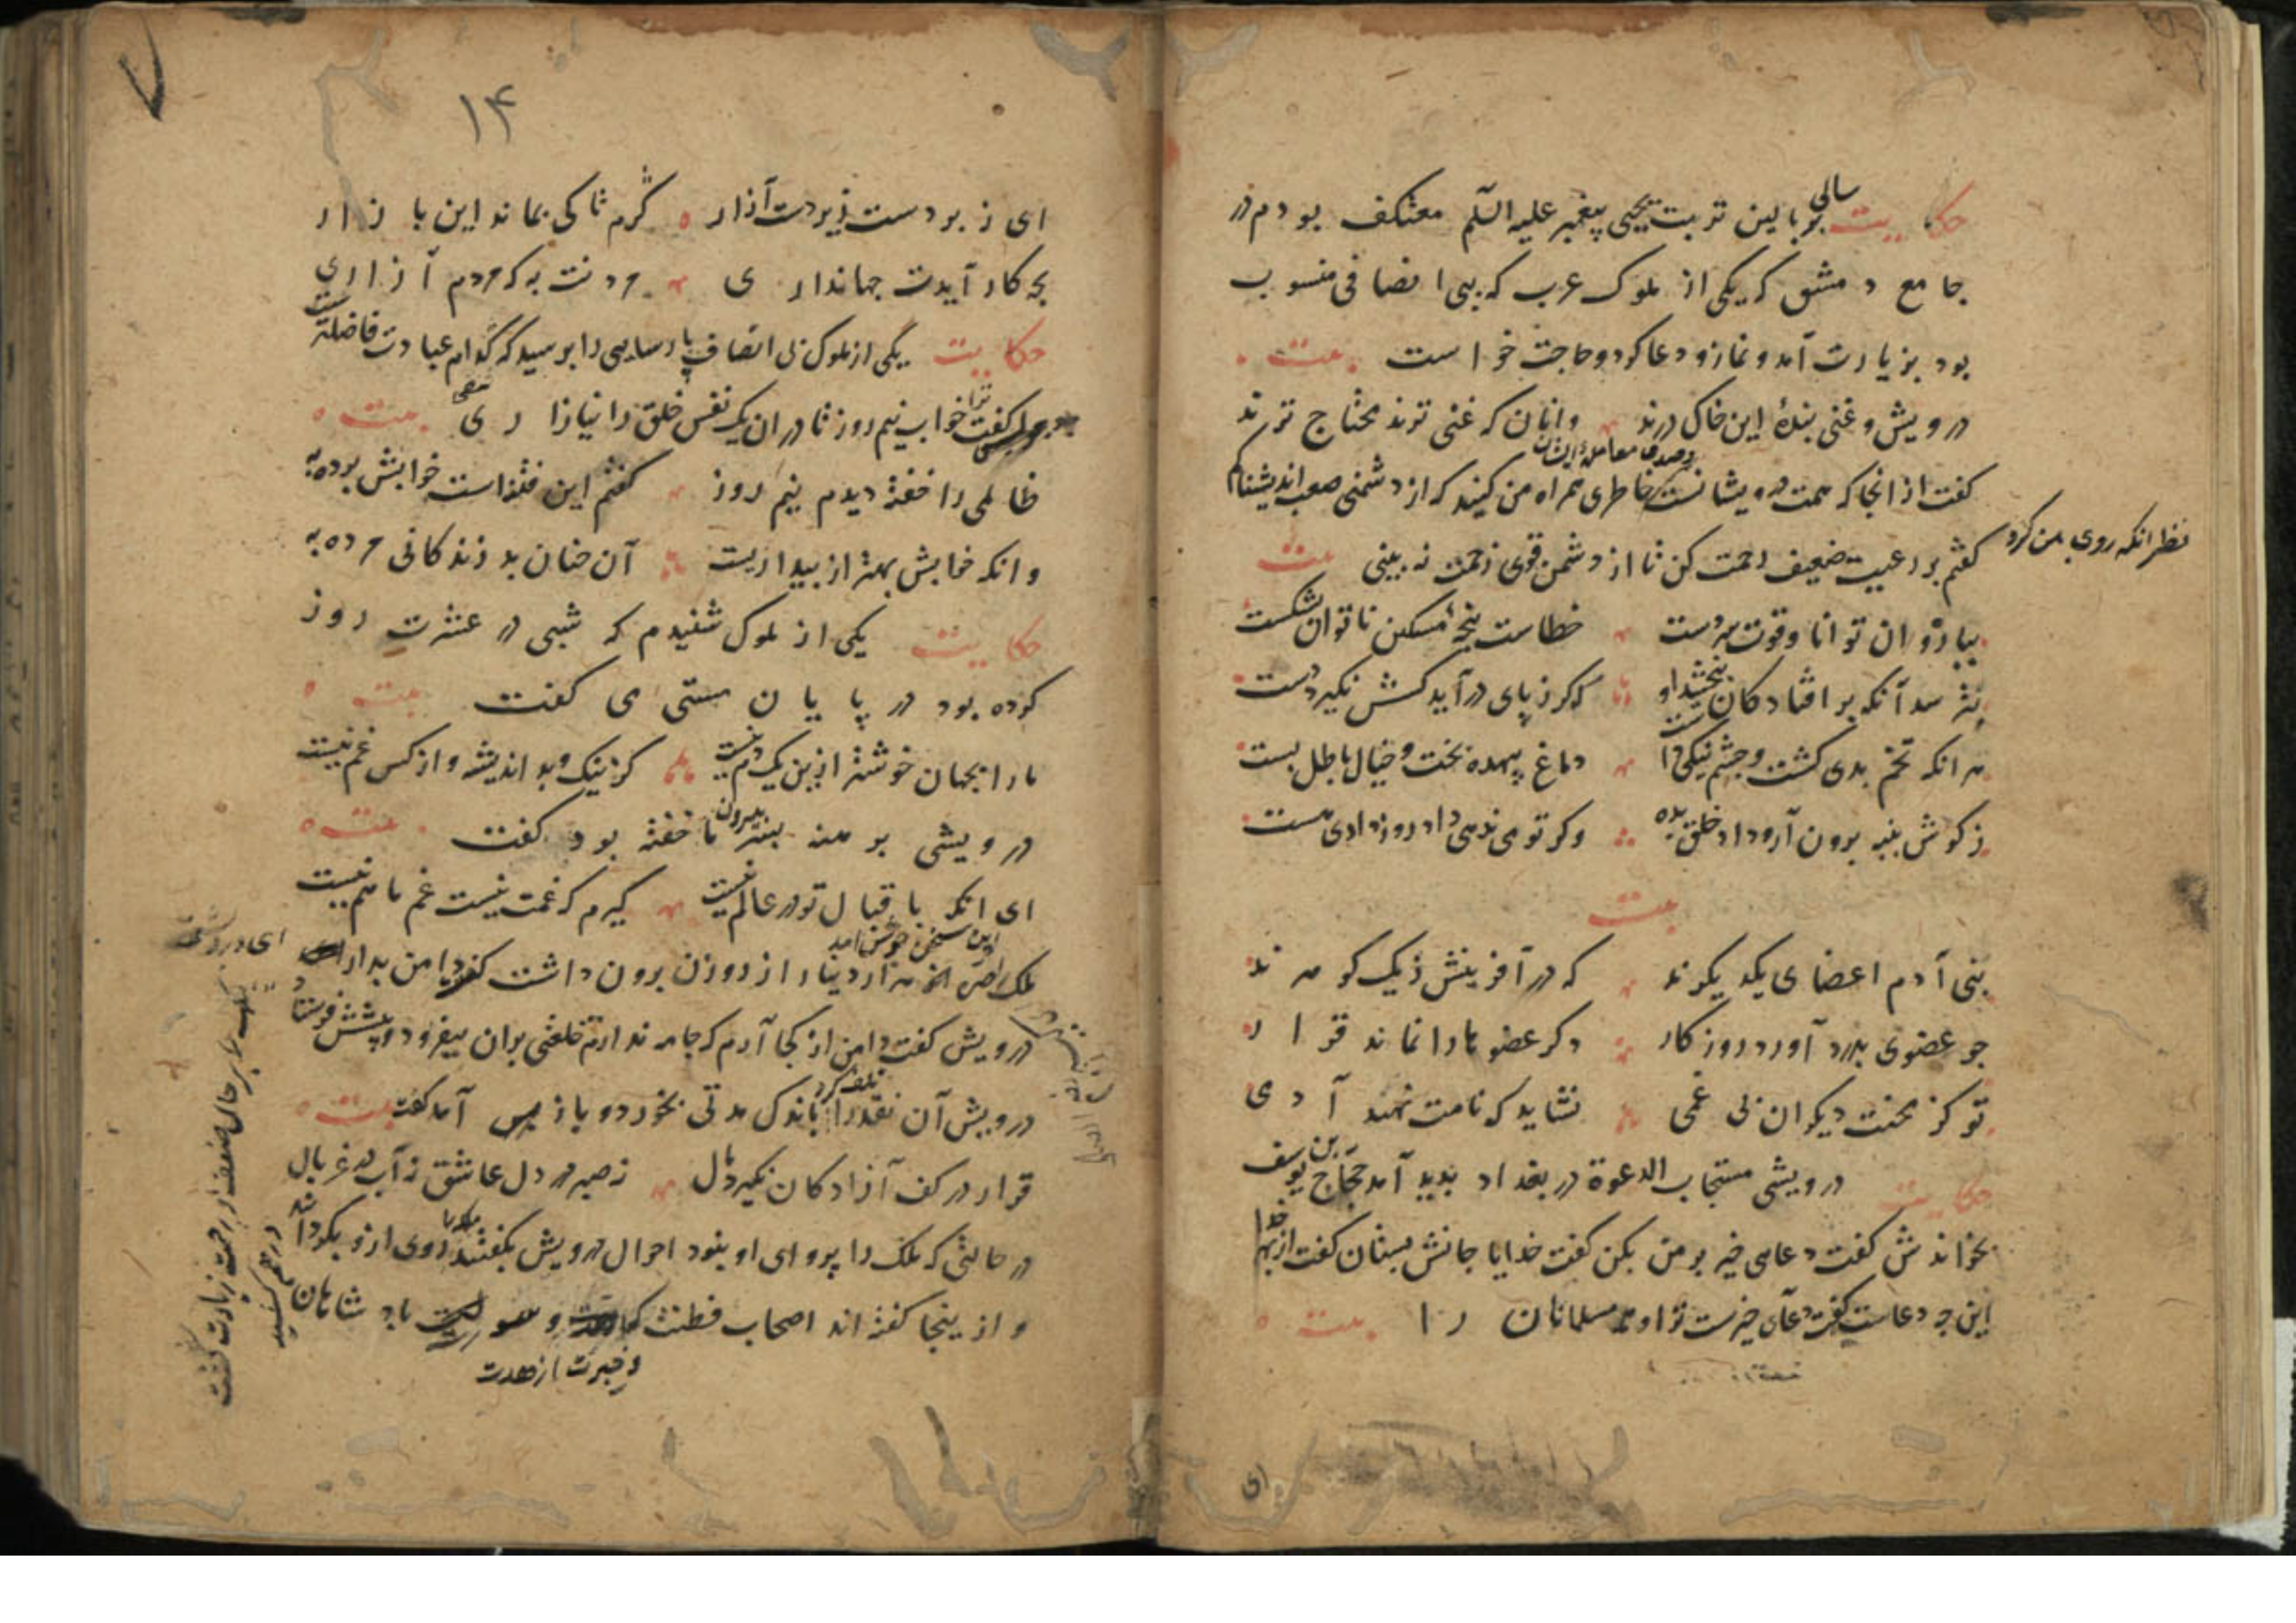 حکایت سالی بر بالین تربت یحیی پیغمبر علیه السلم معتکف بودم در
جامع دمشق که یکی از ملوک عرب که ببی انصافی منسوب
بود بزیارت آمد و نماز و دعا کرد و حاجت خواست بیت
درویش و غنی بندهٔ این خاک درند وانان که غنی ترند محتاج ترند
گفت از انجا که همت درویشانست و صدق معامله ایشان خاطری همراه من کنید که از دشمنی صعب اندیشناکم
نظر انکه روی بمن کرد
گفتم بر رعیت ضعیف رحمت کن تا از دشمن قوی زحمت نه بینی بیت
ببازوان توانا وقوت سر دست خطاست پنجهٔ مسکین ناتوان بشکست
نترسد آنکه بر افتادگان نبخشد او که گر ز پای در آید کسش نگیرد دست
هر انکه تخم بدی کشت و چشم نیکی داشت دماغ بیهده پخت و خیال باطل بست
ز گوش پنبه برون آر و داد خلق بده وگر تو می ندهی داد روز دادی هست
بیت
بنی آدم اعضای یکدیگرند که در آفرینش ز یک گوهرند
چو عضوی بدرد آورد روزگار دگر عضوها را نماند قرار
تو کز محنت دیگران بی غمی نشاید که نامت نهند آدمی
حکایت درویشی مستجاب الدعوة در بغداد پدید آمد حجاج بن یوسف
بخواندش گفت دعای خیر بر من بکن گفت خدایا جانش بستان گفت از بهر خدا
این چه دعاست گفت دعای خیرست ترا و مسلمانان را بیت
ای
۱۴
ای زبردست زیردست آزار گرم تا کی بماند این بازار
بچه کار آیدت جهانداری مردنت به که مردم آزاری
حکایت یکی از ملوک بی انصاف پارسایی را پرسید که کدام عبادت فاضلترست
گفت ترا خواب نیم روز تا در ان یک نفس خلق را نیازاری بیت
ظالمی را خفته دیدم نیم روز گفتم این فتنه است خوابش برده به
وانکه خوابش بهتر از بیداریست آن چنان بد زندگانی مرده به
حکایت یکی از ملوک شنیدم که شبی در عشرت روز
کرده بود در پایان مستی می گفت بیت
مارا بجهان خوشتر ازین یک دم نیست کز نیک و بد اندیشه و از کس غم نیست
درویشی برهنه بسرما بیرون خفته بود گفت بیت
ای انکه باقبال تو در عالم نیست گیرم که غمت نیست غم ما هم نیست
ملک را این سخن خوش آمد هزار دینار از روزن برون داشت گفت دامن بدار ای درویش
درویش گفت دامن از کجا آرم که جامه ندارم خلعتی بران بیفزود و پیشش فرستاد
ملک را بر حال ضعف او رحمت زیادت گشت
درویش آن نقد را باندک مدتی بخورد و تلف کرد و باز آمد گفت بیت
قرار در کف آزادگان نگیرد مال نه صبر در دل عاشق نه آب در غربال
در حالتی که ملک را پروای او نبود احوال درویش بگفتند روی ازو بگردانید
و ازینجا گفته اند اصحاب فطنت و خبرت از حدت و سورت پادشاهان